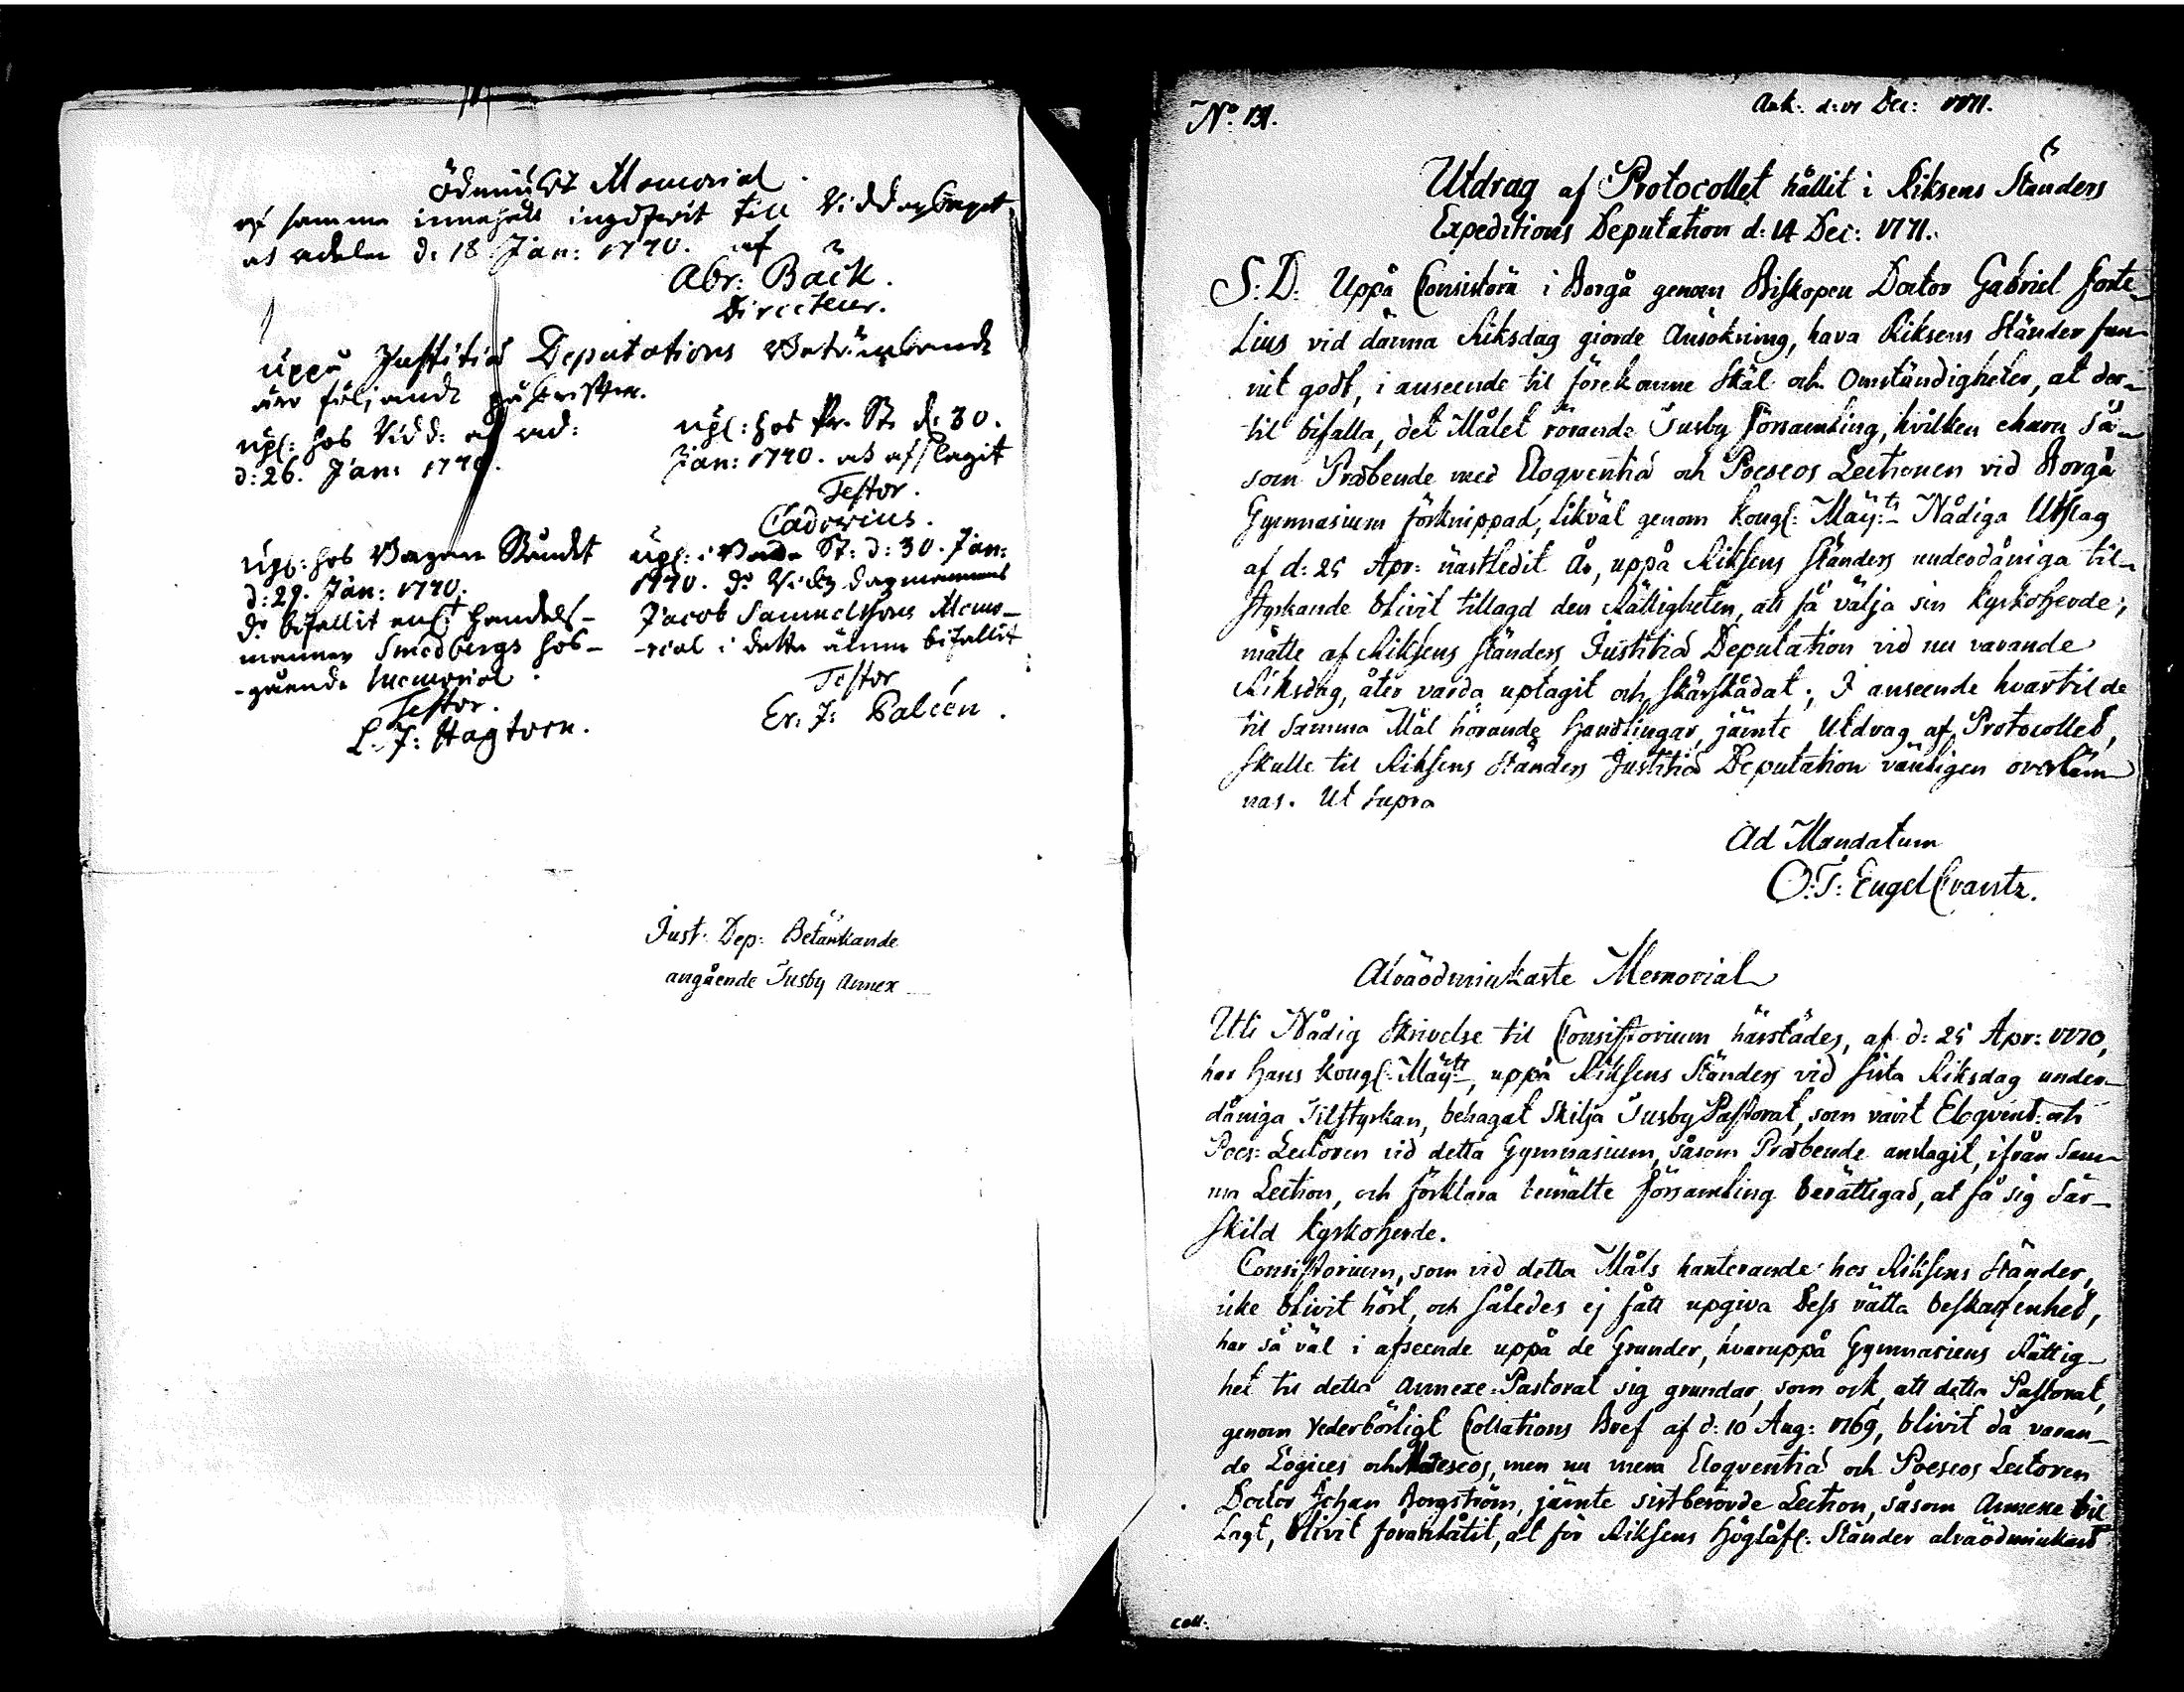 Ödmjukt Memorial.
af samma innehåll ingifwit till Ridderskapet
och adelen d: 18 Jan: 1770. af
Abr: Bäck.
Directeur.
uppå Justitiæ Deputations Betänkande
äro följande påskrifter.
upl: hos Ridd: och ad:
d: 26. Jan: 1770.
upl: hos Pr. St. d: 30.
Jan: 1770. och afslagit
Testor.
Cadovius.
upl: hos Borgare Ståndet
d: 29. Jan: 1770.
do bifallit
mannen Smedbergs hos-
-gående memorial.
Testor.
L. J: Hagtorn.
upl: i Bonde St: d: 30. Jan:
1770. do Riksdagmannens
Jacob Samuelssons Memo-
-rial i detta ämne bifallit
Testor
Er. J: Paléen.
Just. Dep: Betänkande
angående Tusby Annex
No. 131.
Ank: d: 17 Dec: 1771.
Utdrag af Protocollet hållit i Riksens Ständers
Expeditions Deputation d: 14 Dec: 1771.
S: D: Uppå Consistorii i Borgå genom Biskopen Doctor Gabriel Forte-
lius vid denna Riksdag giorde Ansökning, hava Riksens Ständer fun-
nit godt, i anseende til förekomne Skäl och Omständigheter, at der-
til bifalla, det Målet rörande Tusby Församling, hvilken ehuru så-
som Præbende med Eloqventiæ och Poeseos Lectionen vid Borgå
Gymnasium förknippad, likväl genom Kongl: Maij:ts Nådiga Utslag
af d: 25 Apr: nästledit År, uppå Riksens Ständers underdåniga til-
styrkande blivit tillagd den Rättigheten, att få välja sin Kyrkoherde;
måtte af Riksens Ständers Justitiæ Deputation vid nu varande
Riksdag, åter varda uptagit och skärskådat; I anseende hvartil de
til samma Mål hörande Handlingar, jämte Utdrag af Protocollet,
skulle til Riksens Ständers Justitiæ Deputation vänligen överläm-
nas. Ut supra
Ad Mandatum
O: J: Engelcrantz.
Alraödmiukaste Memorial
Uti Nådig Skrivelse til Consistorium härstädes, af d: 25 Apr: 1770,
har Hans Kongl: Maij:tt, uppå Riksens Ständers vid sista Riksdag under-
dåniga Tilstyrkan, behagat skilja Tusby Pastorat, som varit Eloqvent: och
Poes: Lectoren vid detta Gymnasium, såsom Præbende anslagit, ifrån sam-
ma Lection, och förklara bemälte Församling berättigad, at få sig sär-
skild Kyrkoherde.
Consistorium, som vid detta Måls hanterande hos Riksens Ständer,
icke blivit hört, och således ej fått upgiva Dess rätta beskaffenhet,
har så väl i afseende uppå de Grunder, hvaruppå Gymnasiens Rättig-
het til detta Annexe-Pastorat sig grundar, som ock, att detta Pastorat,
genom Vederbörligt Collations Bref af d: 10 Aug: 1769, blivit då varan-
de Logices och Matheseos, men nu mera Eloqventiæ och Poeseos Lectoren
Doctor Johan Borgström, jämte sistberörde Lection, såsom Annexe til-
lagt, blivit föranlåtit, at för Riksens Höglåfl. Ständer alraödmiukast
Coll.